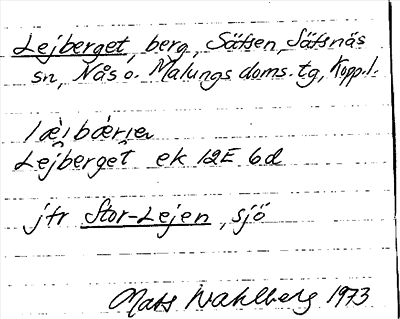 Lejberget, berg, Säfsen, Säfsnäs
sn, Nås o. Malungs doms. tg, Kopp.l.
Lejberget ek 12E 6d
jfr Stor-Lejen, sjö
Mats Wahlberg 1973